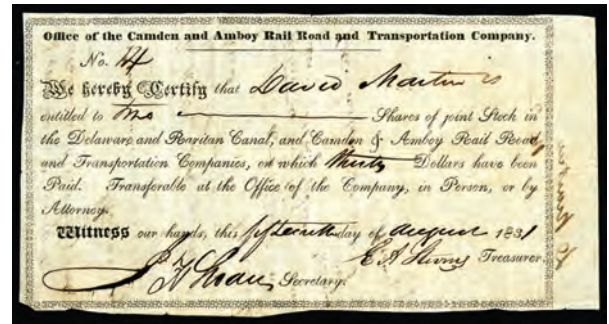 Office of the Camden and Amboy Rail Road and Transportation Company.
No.
We hereby Certify that David Martin is
entitled to Two Shares of joint Stock in
the Delaware and Raritan Canal, and Camden & Amboy Rail Road
and Transportation Companies, on which thirty Dollars have been
Paid. Transferable at the Office of the Company, in Person, or by
Attorney.
Witness our hands, this fifteenth day of August 1831
E A Stevens Treasurer.
Secretary.